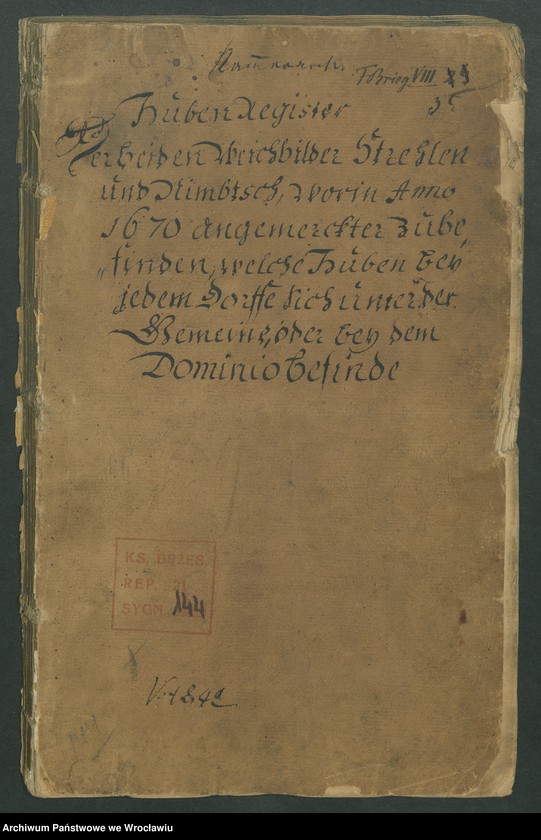 F Brieg VIII
Huben Register
Der beiden Weichbilder Strehlen
und Nimbtsch, worin Anno
1670 angemerckter zu be„
„finden, welche Huben bey
jedem Dorffe sich unter der
Gemeine, oder bey dem
Dominio befinde
KS. BRZES.
REP. 21
SYGN. 144
Archiwum Państwowe we Wrocławiu